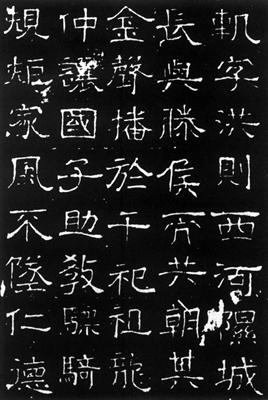 軌字洪則西河隰城
長與滕侯共朝其
金聲播於千祀祖龍
仲讓國子助教驃騎
規矩家風不墜仁德